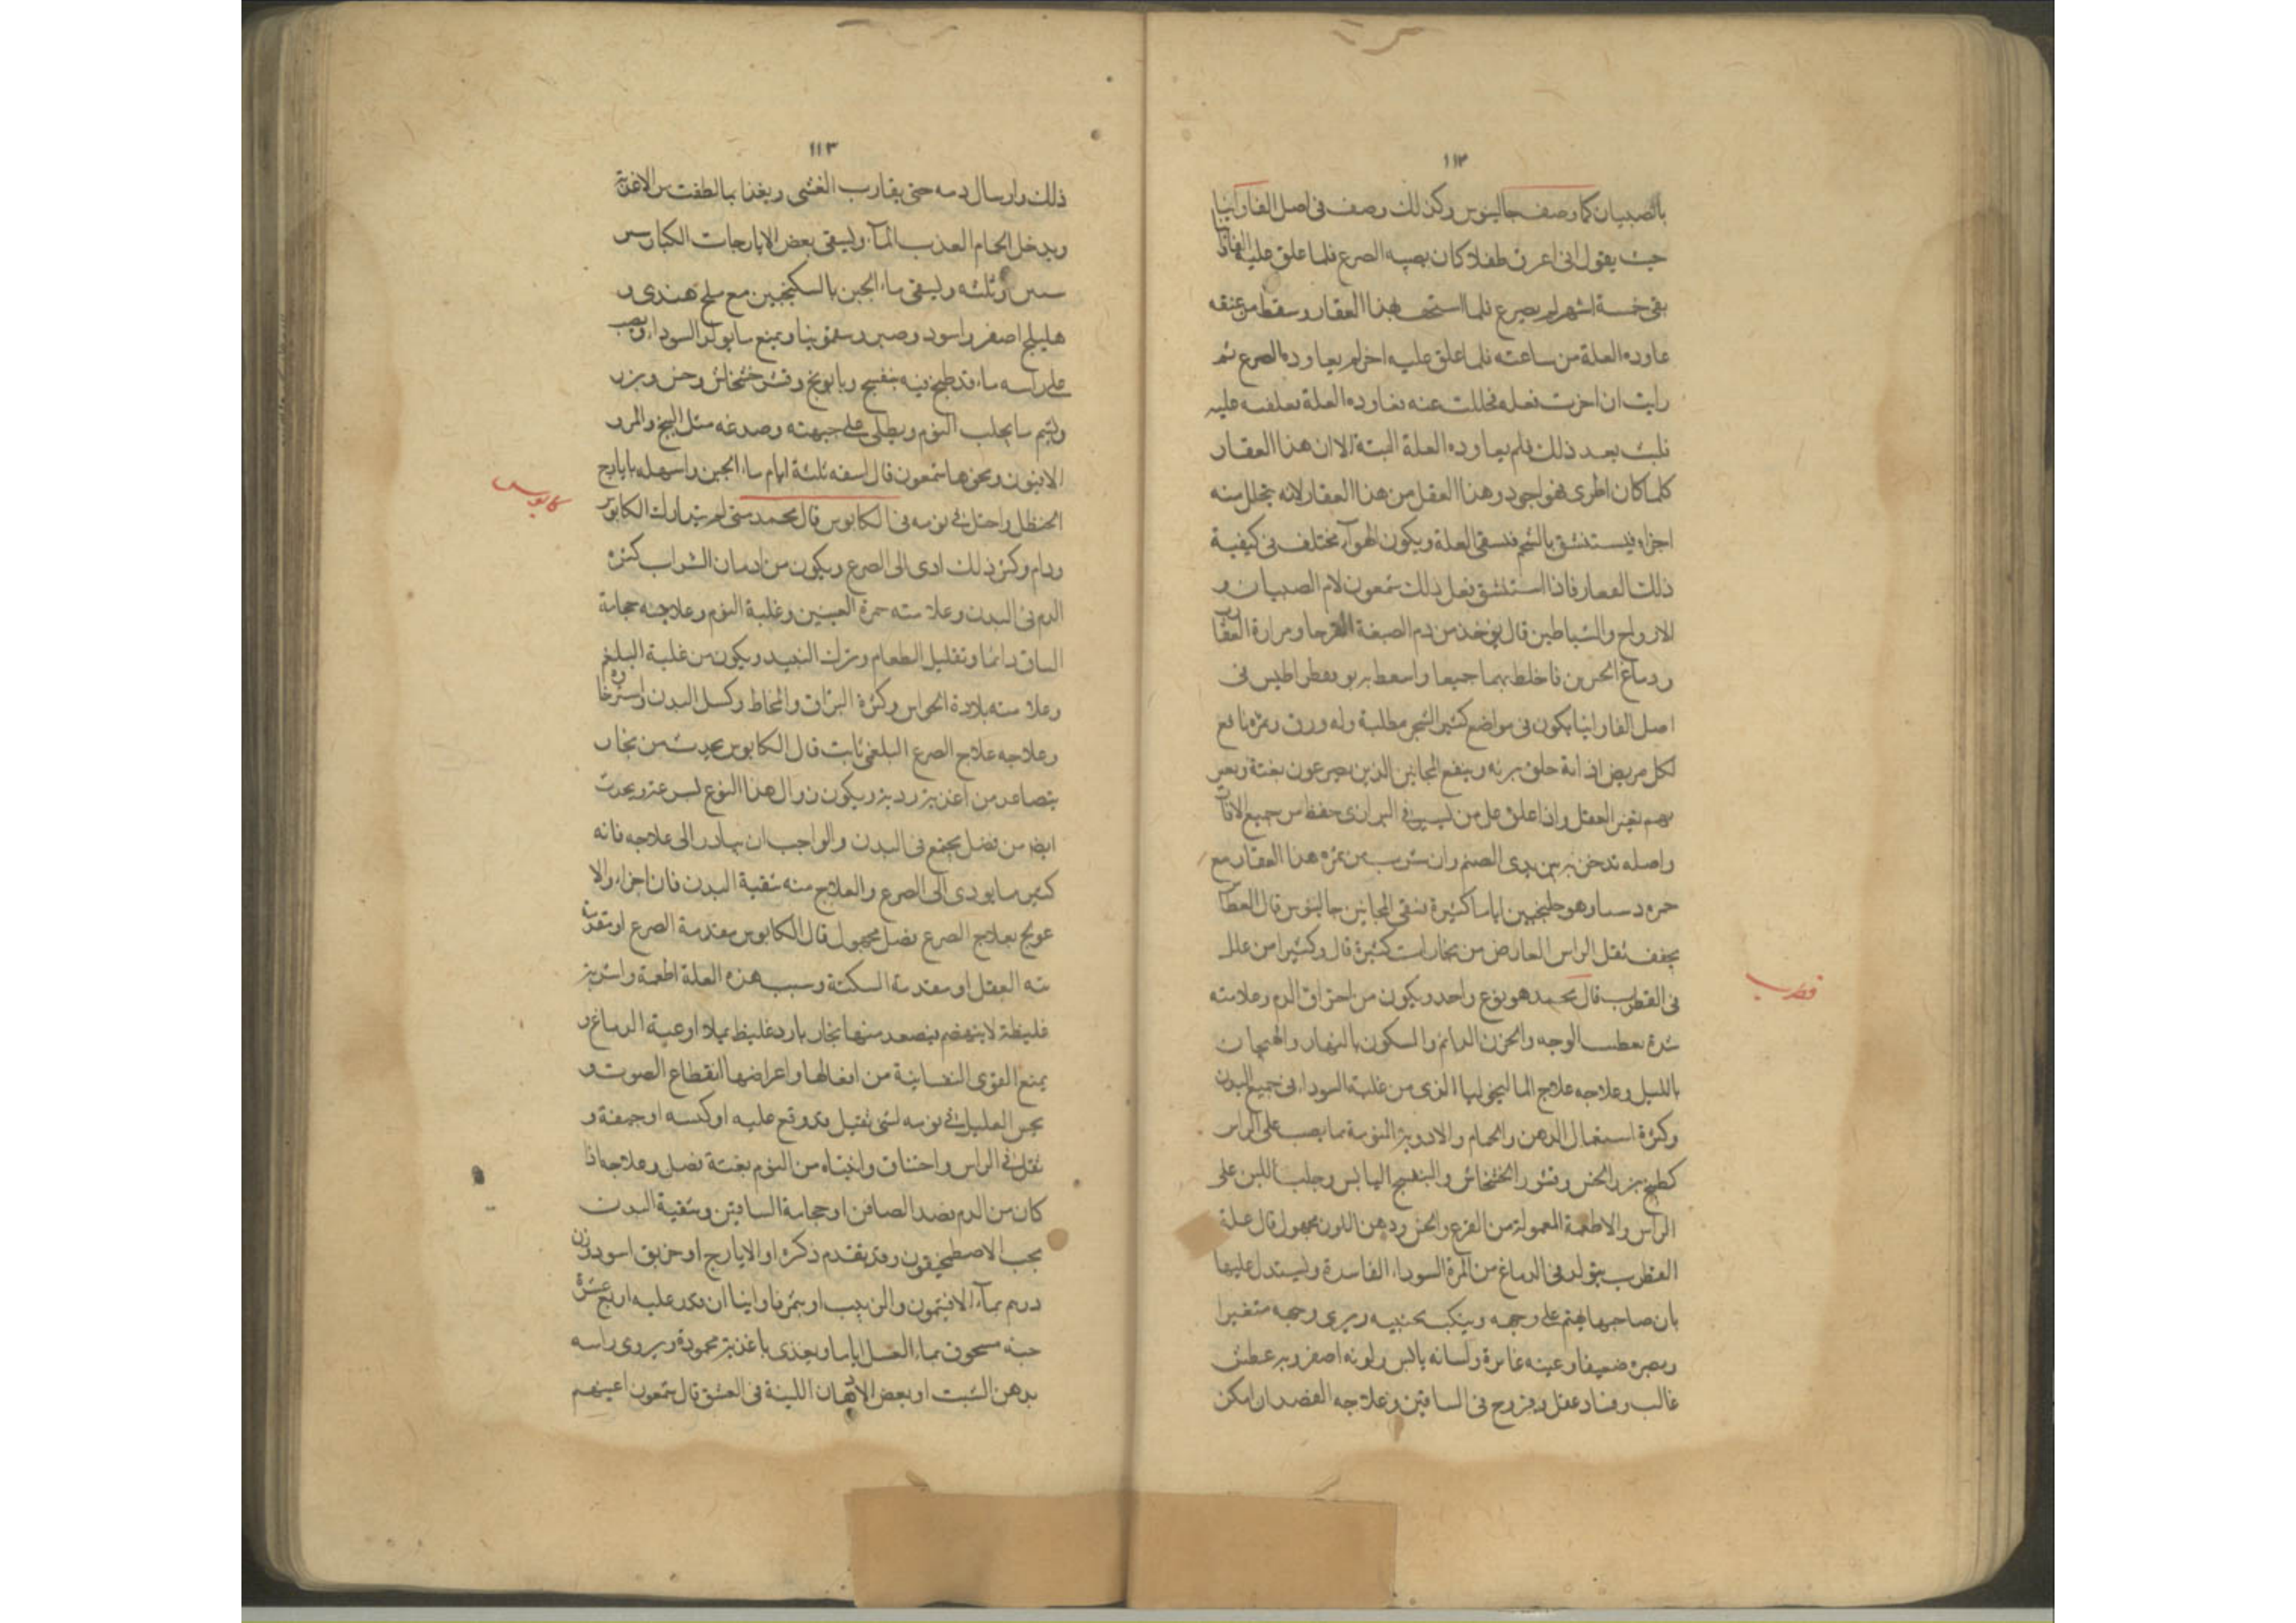 ١١٢
بالصبيان كما وصف جالينوس وكذلك وصف في اصل الفاوانيا
حيث يقول اني اعرف طفلا كان يصيبه الصرع فلما علق عليه الفاوانيا
بقي خمسة اشهر لم يصرع فلما هذا العقار وسقط من عنقه
عاوده العلة من ساعته فلما علق عليه اخر لم يعاوده الصرع ثم
رايت ان اخذت عنه فعاوده العلة فعلقته عليه
بعد ذلك فلم يعاوده العلة البتة الا ان هذا العقار
كلما كان اطرى فهو اجود وهذا من هذا العقار لانه يتحلل منه
اجزاء فيستنشق بالشم العلة ويكون الهوآء مختلف في كيفية
ذلك العقار فاذا استنشق فعل ذلك شمعون لام الصبيان و
الارواح والشياطين قال يوخذ من دم ومرارة
ودماغ فاخلط بهما جميعا واسعط به في
اصل الفاوانيا يكون في مواضع كثير الشجر وله ورق وثمره نافع
لكل مريض اذا علق به وينفع المجانين الذين يصرعون بغتة
تغير العقل واذا علق على من حفظ من جميع الافات
واصله تدخن به بين يدي الصنم وان شرب من ثمره هذا العقار مع
وهو اياما كثيرة المجانين جالينوس قال
يجفف ثقل الراس العارض من بخارات كثيرة قال وكثيرا من علل
في القطرب قال محمد هو نوع واحد ويكون من احتراق الدم وعلامته
شدة الوجه والحزن الدائم والسكون بالنهار والهيجان
بالليل وعلاجه علاج الماليخوليا الذي من غلبة السوداء في جميع البدن
وكثرة استعمال الدهن والحمام والادوية المنومة مما يصب على الراس
كطبيخ بزر الخس وقشور الخشخاش والبنفسج اليابس وحلب اللبن على
الراس والاطعمة المعمولة من القرع والخس ودهن اللوز مجهول قال علة
القطرب يتولد في الدماغ من المرة السوداء الفاسدة ويستدل عليها
بان صاحبها على وجهه ويرى وجهه متغيرا
وبصره ضعيفا وعينه غائرة ولسانه يابس ولونه اصفر وبه عطش
غالب وفساد عقل وقروح في الساقين وعلاجه الفصد ان امكن
قطرب
١١٣
ذلك وارسال دمه حتى يقارب الغشي ويغذا بما لطف من الاغذية
ويدخل الحمام العذب المآء ويسقى بعض الايارجات الكبار
وثلثه ويسقى ماء الجبن بالسكنجبين مع ملح هندي و
هليلج اصفر واسود وصبر وسقمونيا ويمنع ما يولد السوداء ويصب
على راسه ماء قد طبخ فيه بنفسج وبابونج وقشر خشخاش وخس وبزره
ويشم ما يجلب النوم ويطلى على جبهته وصدغه مثل البنج والمر و
الافيون ونحوها شمعون قال اسقه ثلثة ايام ماء الجبن واسهله بايارج
الحنظل واحتل في نومه في الكابوس قال محمد متى لم يتدارك الكابوس
ودام وكثر ذلك ادى الى الصرع ويكون من ادمان الشراب كثرة
الدم في البدن وعلامته حمرة العينين وغلبة النوم وعلاجه حجامة
الساق دائما وتقليل الطعام وترك النبيذ ويكون من غلبة البلغم
وعلامته بلادة الحواس وكثرة البزاق والمخاط وكسل البدن واسترخاؤه
وعلاجه علاج الصرع البلغمي ثابت قال الكابوس يحدث من بخار
يتصاعد من اغذية ردية ويكون زوال هذا النوع لسرعة ويحدث
ايضا من فضل يجتمع في البدن والواجب ان يبادر الى علاجه فانه
كثير ما يودي الى الصرع والعلاج منه تنقية البدن فان اجزاء والا
عولج بعلاج الصرع فصل مجهول قال الكابوس مقدمة الصرع او مقدمة
العقل او مقدمة السكتة وسبب هذه العلة اطعمة واشربة
غليظة لا ينهضم فيصعد منها بخار بارد غليظ يملا اوعية الدماغ و
يمنع القوى النفسانية من افعالها واعراضها انقطاع الصوت و
يحس العليل في نومه لشي ثقيل قد وقع عليه او كبسه او و
ثقل في الراس واختناق وانتباه من النوم بغتة فصل وعلاجه اذا
كان من الدم فصد الصافن او حجامة الساقين وتنقية البدن
بحب الاصطمخيقون وقد تقدم ذكره او الايارج او خربق اسود وزن
درهم بمآء الافتيمون والزبيب او بثمر فاوانيا ان قدر عليه اربع عشرة
حبة مسحوق بماء العسل اياما ويغذى باغذية محمودة ويروى راسه
بدهن الشبت او بعض الادهان اللينة في العشق قال شمعون اعينهم
كابوس